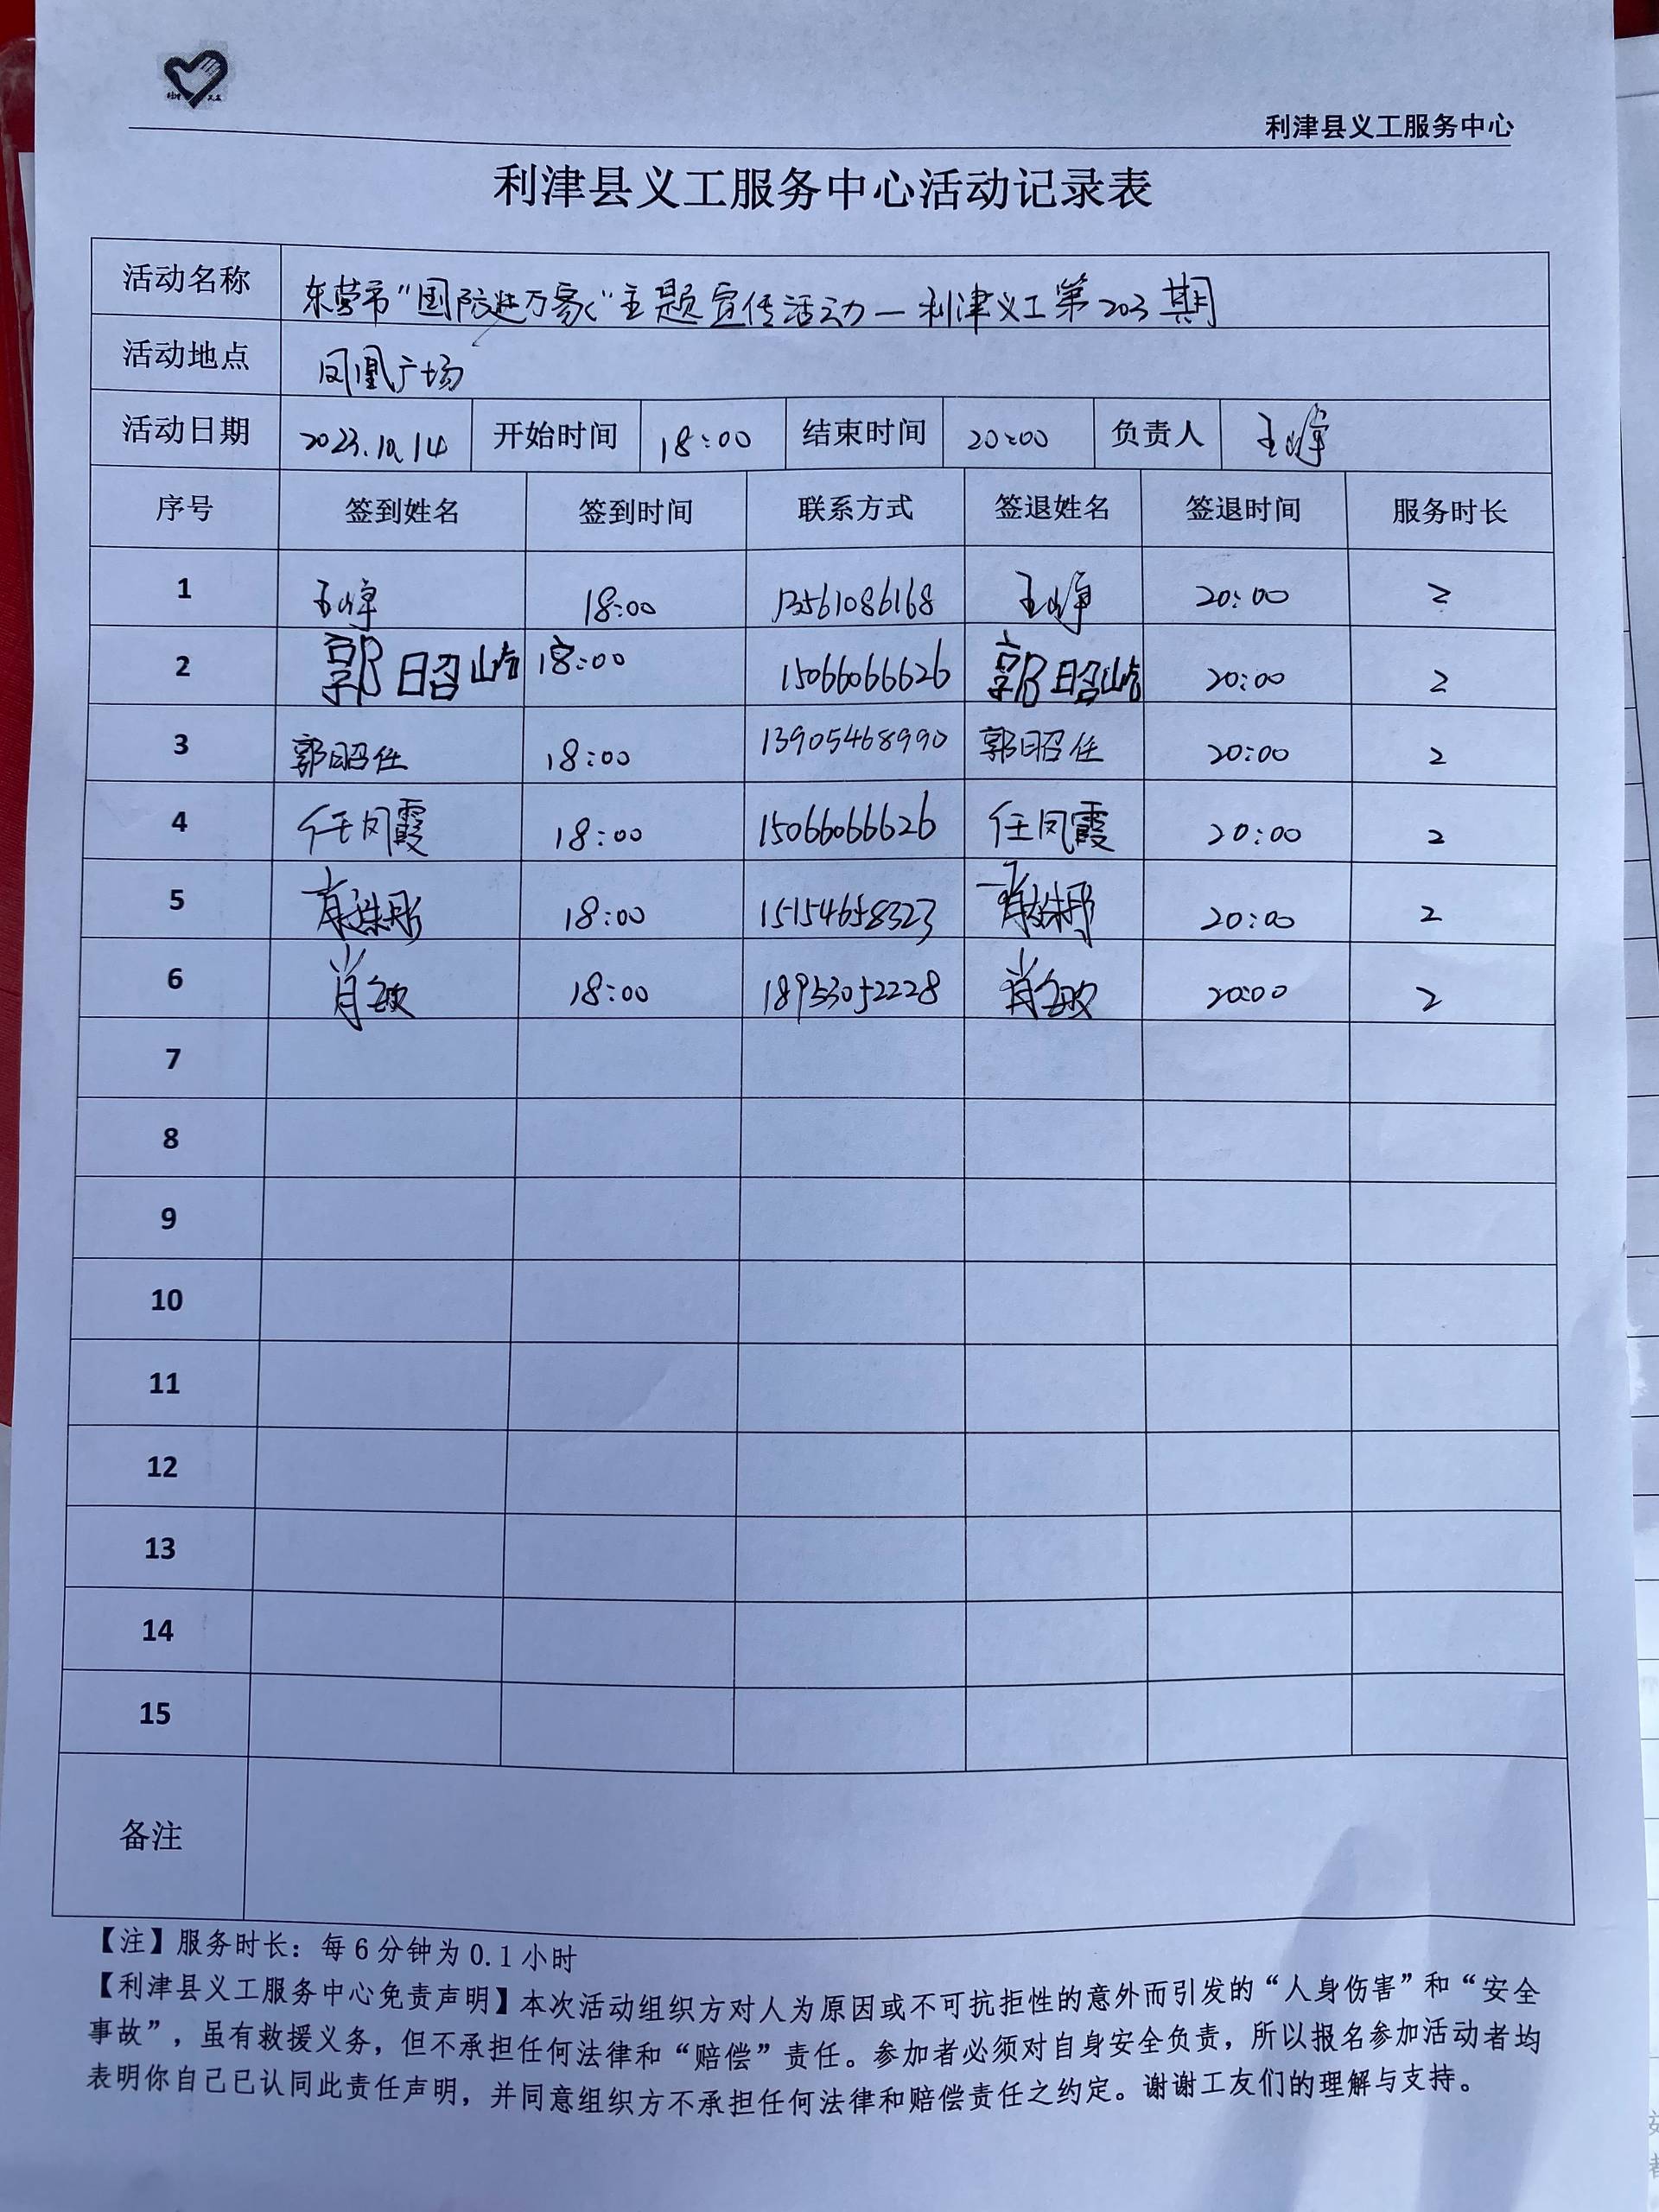 利津县义工服务中心
利津县义工服务中心活动记录表
活动名称 东营市“国防进万家”主题宣传活动—利津义工第203期
活动地点 凤凰广场
活动日期 2023.10.14 开始时间 18:00 结束时间 20:00 负责人 王峥
序号 签到姓名 签到时间 联系方式 签退姓名 签退时间 服务时长
1 王峥 18:00 13561086168 王峥 20:00 2
2 郭昭峼 18:00 15066066626 郭昭峼 20:00 2
3 郭昭任 18:00 13905468990 郭昭任 20:00 2
4 任凤霞 18:00 15066066626 任凤霞 20:00 2
5 18:00 15154658323 20:00 2
6 肖敏 18:00 18953052228 肖敏 20:00 2
7
8
9
10
11
12
13
14
15
备注
【注】服务时长：每6分钟为0.1小时
【利津县义工服务中心免责声明】本次活动组织方对人为原因或不可抗拒性的意外而引发的“人身伤害”和“安全
事故”，虽有救援义务，但不承担任何法律和“赔偿”责任。参加者必须对自身安全负责，所以报名参加活动者均
表明你自己已认同此责任声明，并同意组织方不承担任何法律和赔偿责任之约定。谢谢工友们的理解与支持。